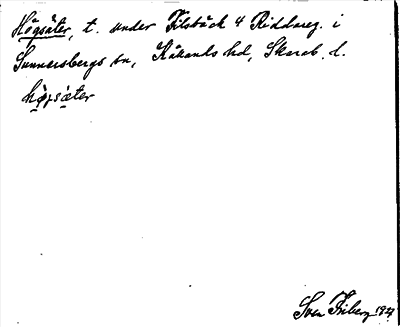 Högsäter, t. under Filsbäck 4 Riddareg. i
Sunnersbergs sn, Kållands hd, Skarab. l.
högsäter
Sven Friberg 1927